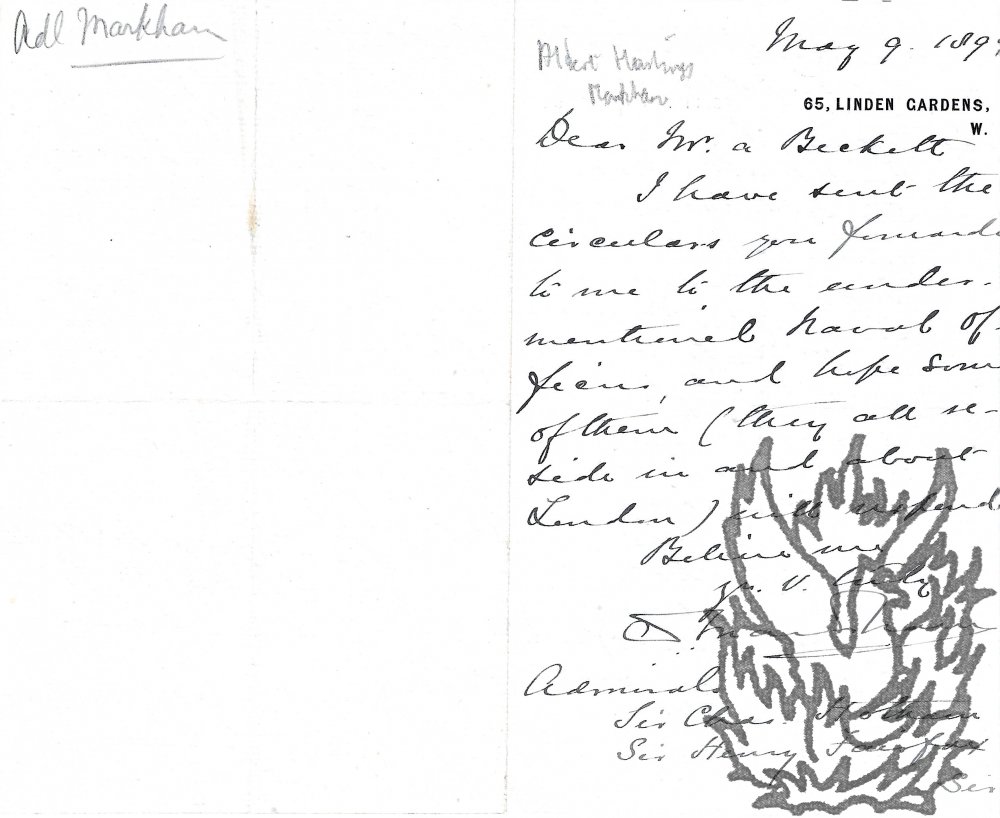 Adl Markham
May 9. 189
Albert Hastings
Markham
65, LINDEN GARDENS,
W.
Dear Mr. a Beckett
I have sent the
circulars you forward
to me to the under-
mentioned Naval Of-
ficers, and hope som
of them (they all re-
side in and about
London) will respond
Believe me
yr. v. truly
A Markham
Admirals
Sir Chas. Hotham
Sir Henry Fairfax
Sir